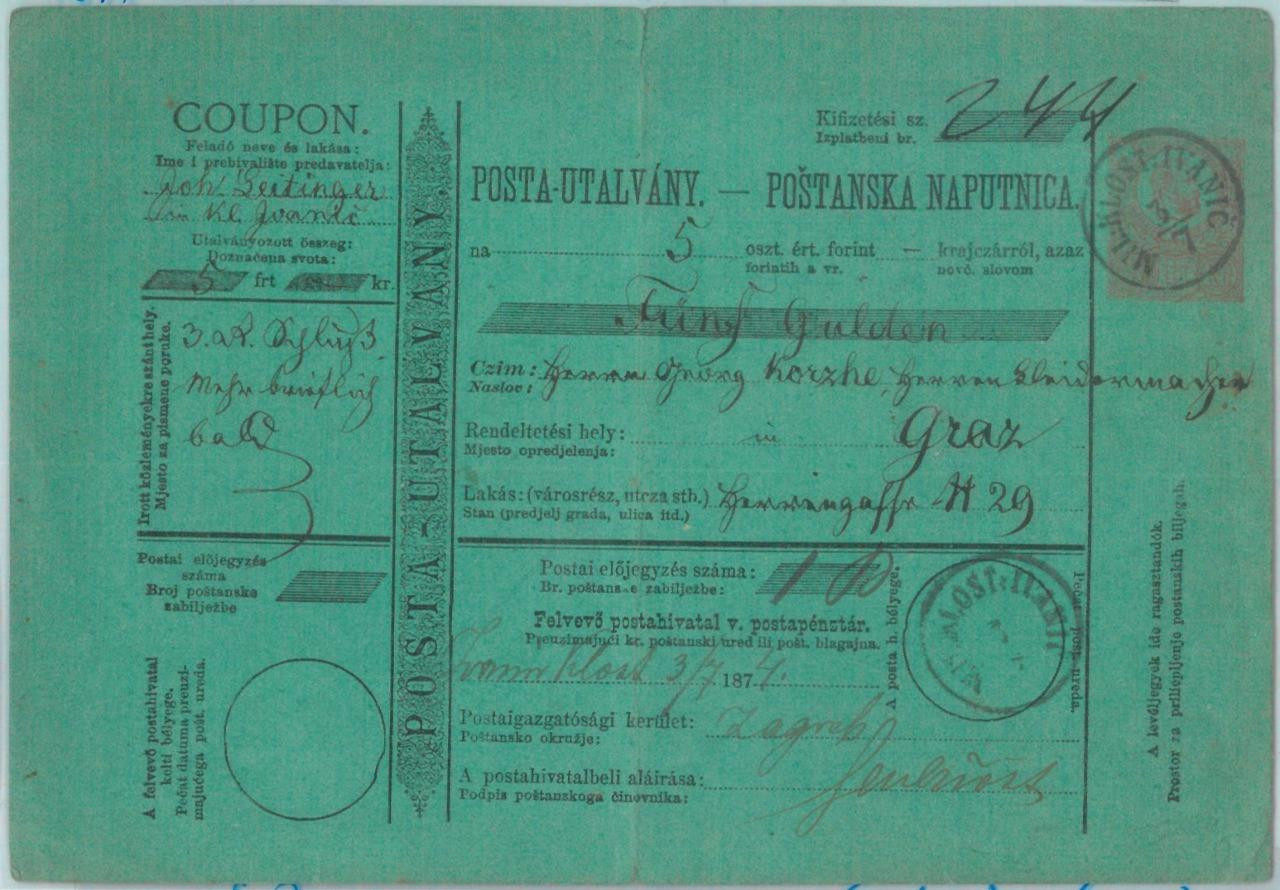 COUPON.
Feladó neve és lakása:
Ime i prebivalište predavatelja:
Joh. Leitinger
in Kl. Ivanić
Utalványozott összeg:
Doznačena svota:
5 frt kr.
Irott közleményekre szánt hely.
Mjesto za pismene poruke.
Mehr brieflich
bald
Postai előjegyzés
száma
Broj poštanske
zabilježbe
A felvevő postahivatal
kelti bélyege.
Pečat datuma preuzi-
majućega pošt. ureda.
POSTA-UTALVÁNY.
Kifizetési sz. 244
Izplatbeni br.
POSTA-UTALVÁNY. — POŠTANSKA NAPUTNICA.
na 5 oszt. ért. forint — krajczárról, azaz
forintih a vr. novč. slovom
Fünf Gulden
Czim: Herrn Georg Korzhe, Herren Kleidermacher
Naslov:
Rendeltetési hely: in Graz
Mjesto opredjelenja:
Lakás: (városrész, utcza stb.) Herrengasse N 29
Stan (predjelj grada, ulica itd.)
Postai előjegyzés száma:
Br. poštanske zabilježbe:
Felvevő postahivatal v. postapénztár.
Preuzimajući kr. poštanski ured ili pošt. blagajna.
Klost 3/7 1874.
Postaigazgatósági kerület: Zagreb
Poštansko okružje:
A postahivatalbeli aláirása:
Podpis poštanskoga činovnika:
A posta h. bélyege.
Pečat pošt. ureda.
KLOST: IVANIĆ
MIL. KLOST: IVANIČ
3/7
A levéljegyek ide ragasztandók.
Prostor za priliepljenje postanskih biljegah.